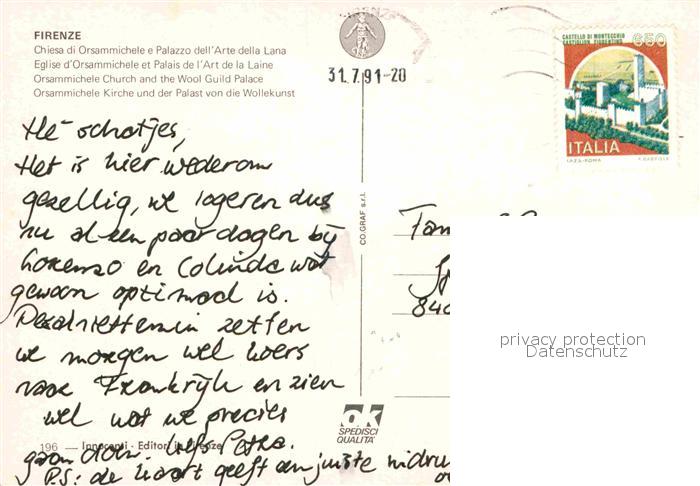 FIRENZE
Chiesa di Orsammichele e Palazzo dell'Arte della Lana
Eglise d'Orsammichele et Palais de l'Art de la Laine
Orsammichele Church and the Wool Guild Palace
Orsammichele Kirche und der Palast von die Wollekunst
FIRENZE
31.7.91-20
CASTELLO DI MONTECCHIO
CASTIGLION FIORENTINO
650
ITALIA
I.P.Z.S.-ROMA
Hé schatjes,
Het is hier wederom
gezellig, we logeren dus
nu al een paar dagen bij
Lorenzo en Colinda wat
gewoon optimaal is.
Desalniettemin zetten
we morgen wel koers
naar Frankrijk en zien
wel wat we precies
gaan doen. Liefs
P.S.: de kaart geeft een juiste indru
CO.GRAF s.r.l.
Fam
840
ok
SPEDISCI
QUALITA'
196 — Innocenti - Editori in Firenze
privacy protection
Datenschutz